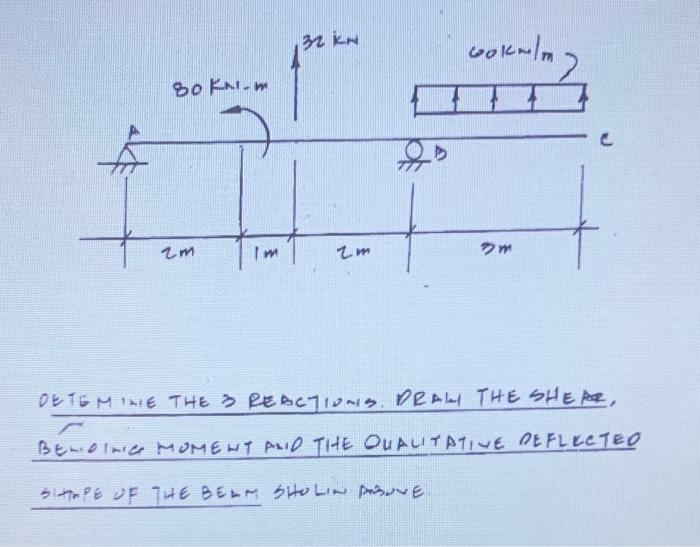 32 KN
60KN/m
80 KN-m
A
B
C
2m
1m
2m
3m
DETEMINE THE 3 REACTIONS. DRAW THE SHEAR,
BENDING MOMENT AND THE QUALITATIVE DEFLECTED
SHAPE OF THE BEAM SHOWN ABOVE.